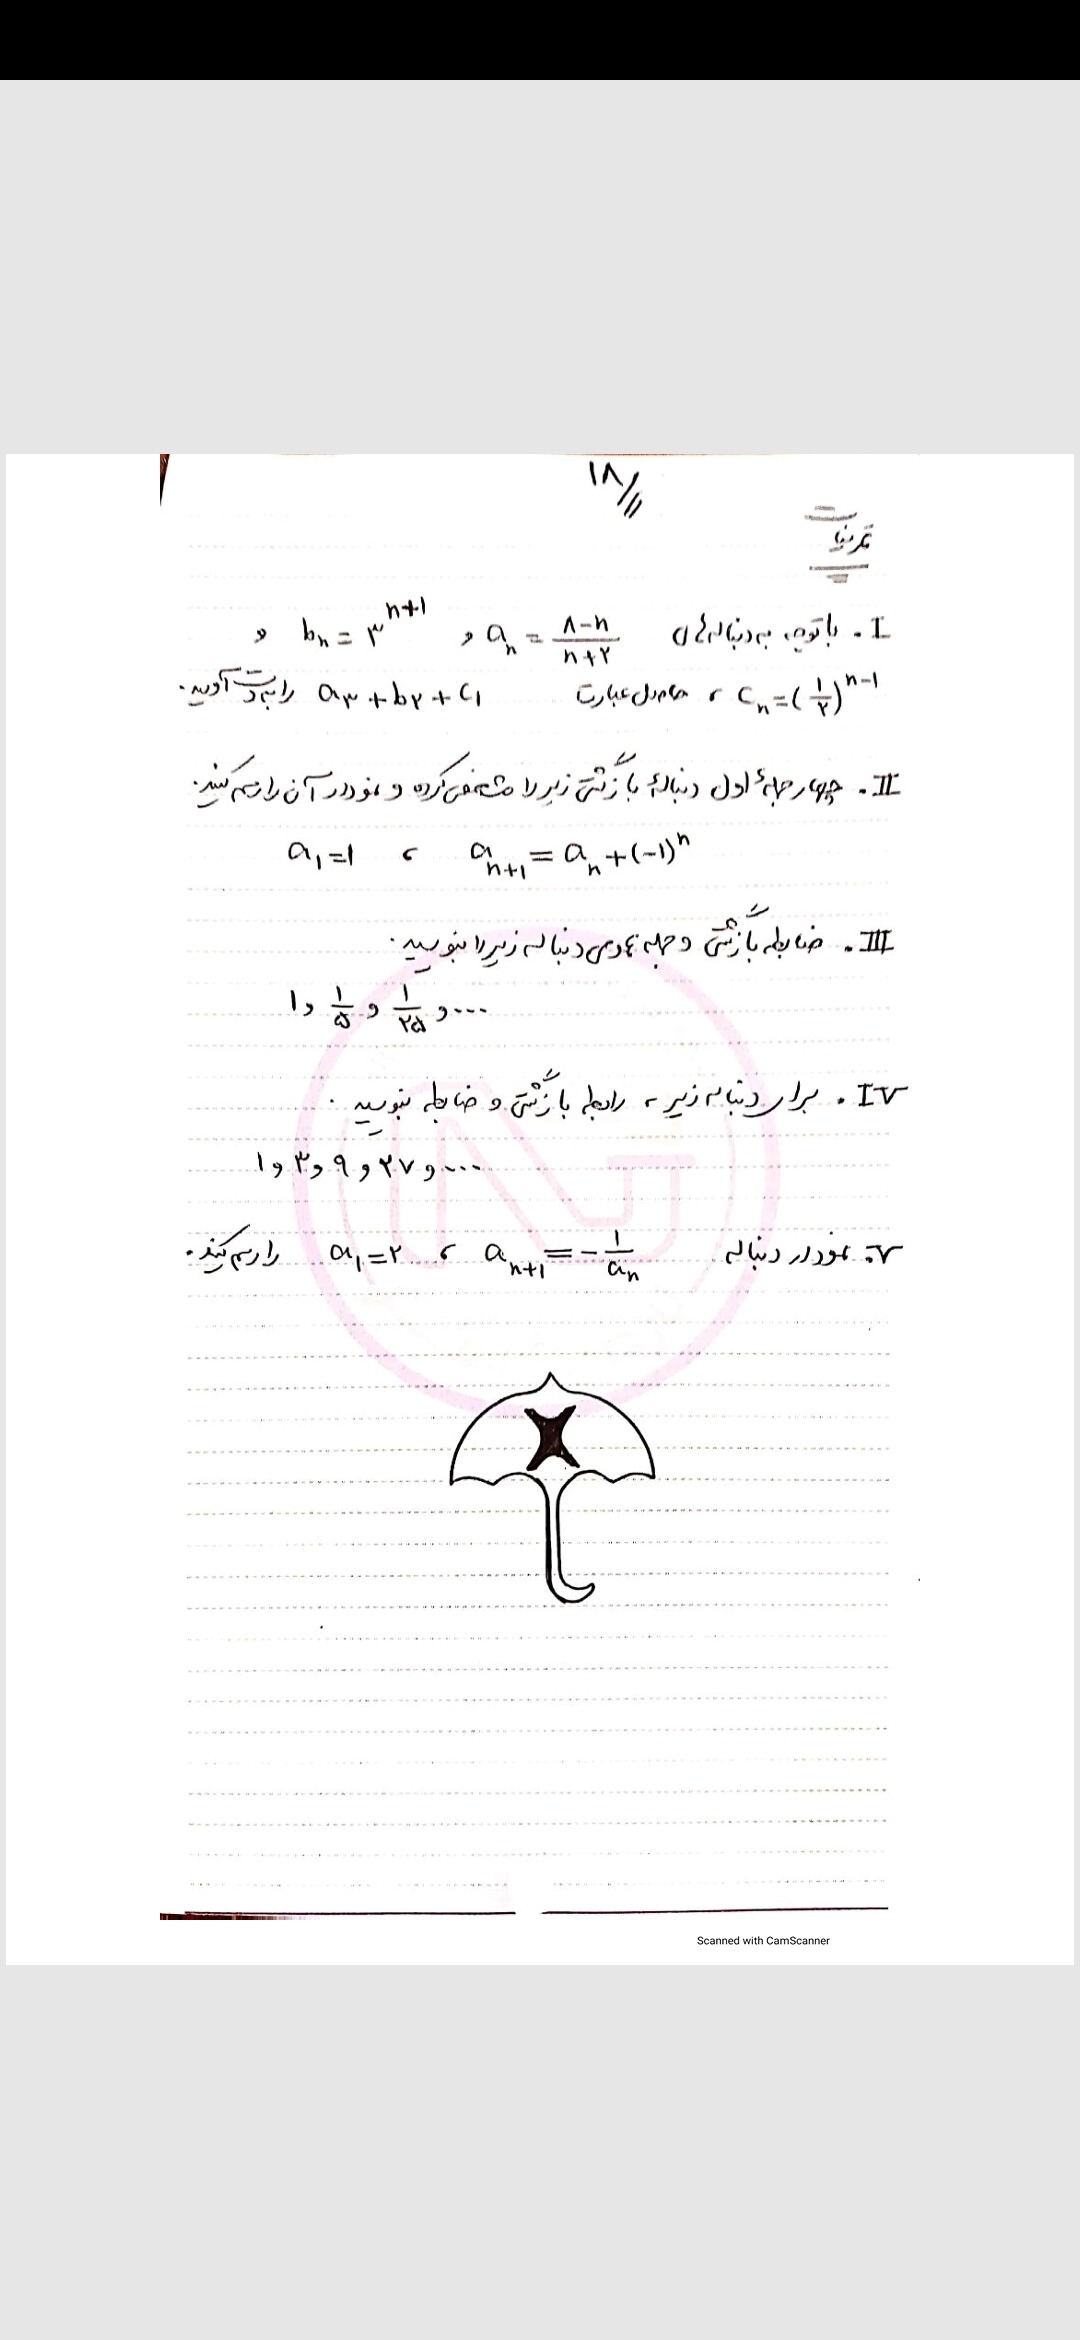 ۱۸//
تمرینات
I. با توجه به دنباله‌های aₙ = (۸-n)/(n+۲) و bₙ = ۳ⁿ⁺¹ و
cₙ = (۱/۲)ⁿ⁻¹ ، حاصل عبارت a۳ + b۲ + c۱ را به دست آورید.
II. چهار جملهٔ اول دنبالهٔ بازگشتی زیر را مشخص کرده و نمودار آن را رسم کنید.
a۱ = ۱ ، aₙ₊₁ = aₙ + (-۱)ⁿ
III. ضابطه بازگشتی و جمله عمومی دنباله زیر را بنویسید.
۱ و ۱/۵ و ۱/۲۵ و ...
IV. برای دنباله زیر ، رابطه بازگشتی و ضابطه بنویسید.
۱ و ۳ و ۹ و ۲۷ و ...
V. نمودار دنباله aₙ₊₁ = -۱/aₙ ، a۱ = ۲ را رسم کنید.
Scanned with CamScanner